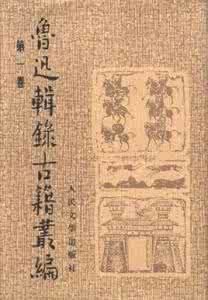 魯迅輯録古籍叢編
第一卷
人民文学出版社